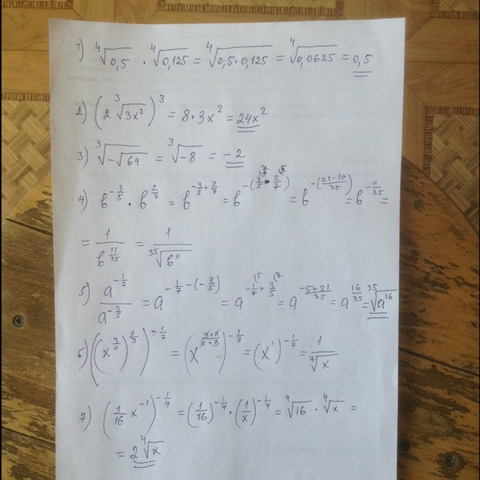 1) ⁴√0,5 · ⁴√0,125 = ⁴√(0,5·0,125) = ⁴√0,0625 = 0,5
2) (2 ³√(3x²))³ = 8·3x² = 24x²
3) ³√(-√64) = ³√-8 = -2
4) b^(-3/5) · b^(2/7) = b^(-3/5+2/7) = b^(-(3/5-2/7)) = b^(-(21-10)/35) = b^(-11/35) =
= 1/b^(11/35) = 1/³⁵√(b¹¹)
5) a^(-1/7)/a^(-3/5) = a^(-1/7-(-3/5)) = a^(-1/7+3/5) = a^((-5+21)/35) = a^(16/35) = ³⁵√(a¹⁶)
6) ((x^(3/11))^(11/3))^(-1/7) = (x^((3·11)/(11·3)))^(-1/7) = (x¹)^(-1/7) = 1/⁷√x
7) (1/16 x⁻¹)^(-1/4) = (1/16)^(-1/4) · (1/x)^(-1/4) = ⁴√16 · ⁴√x =
= 2 ⁴√x